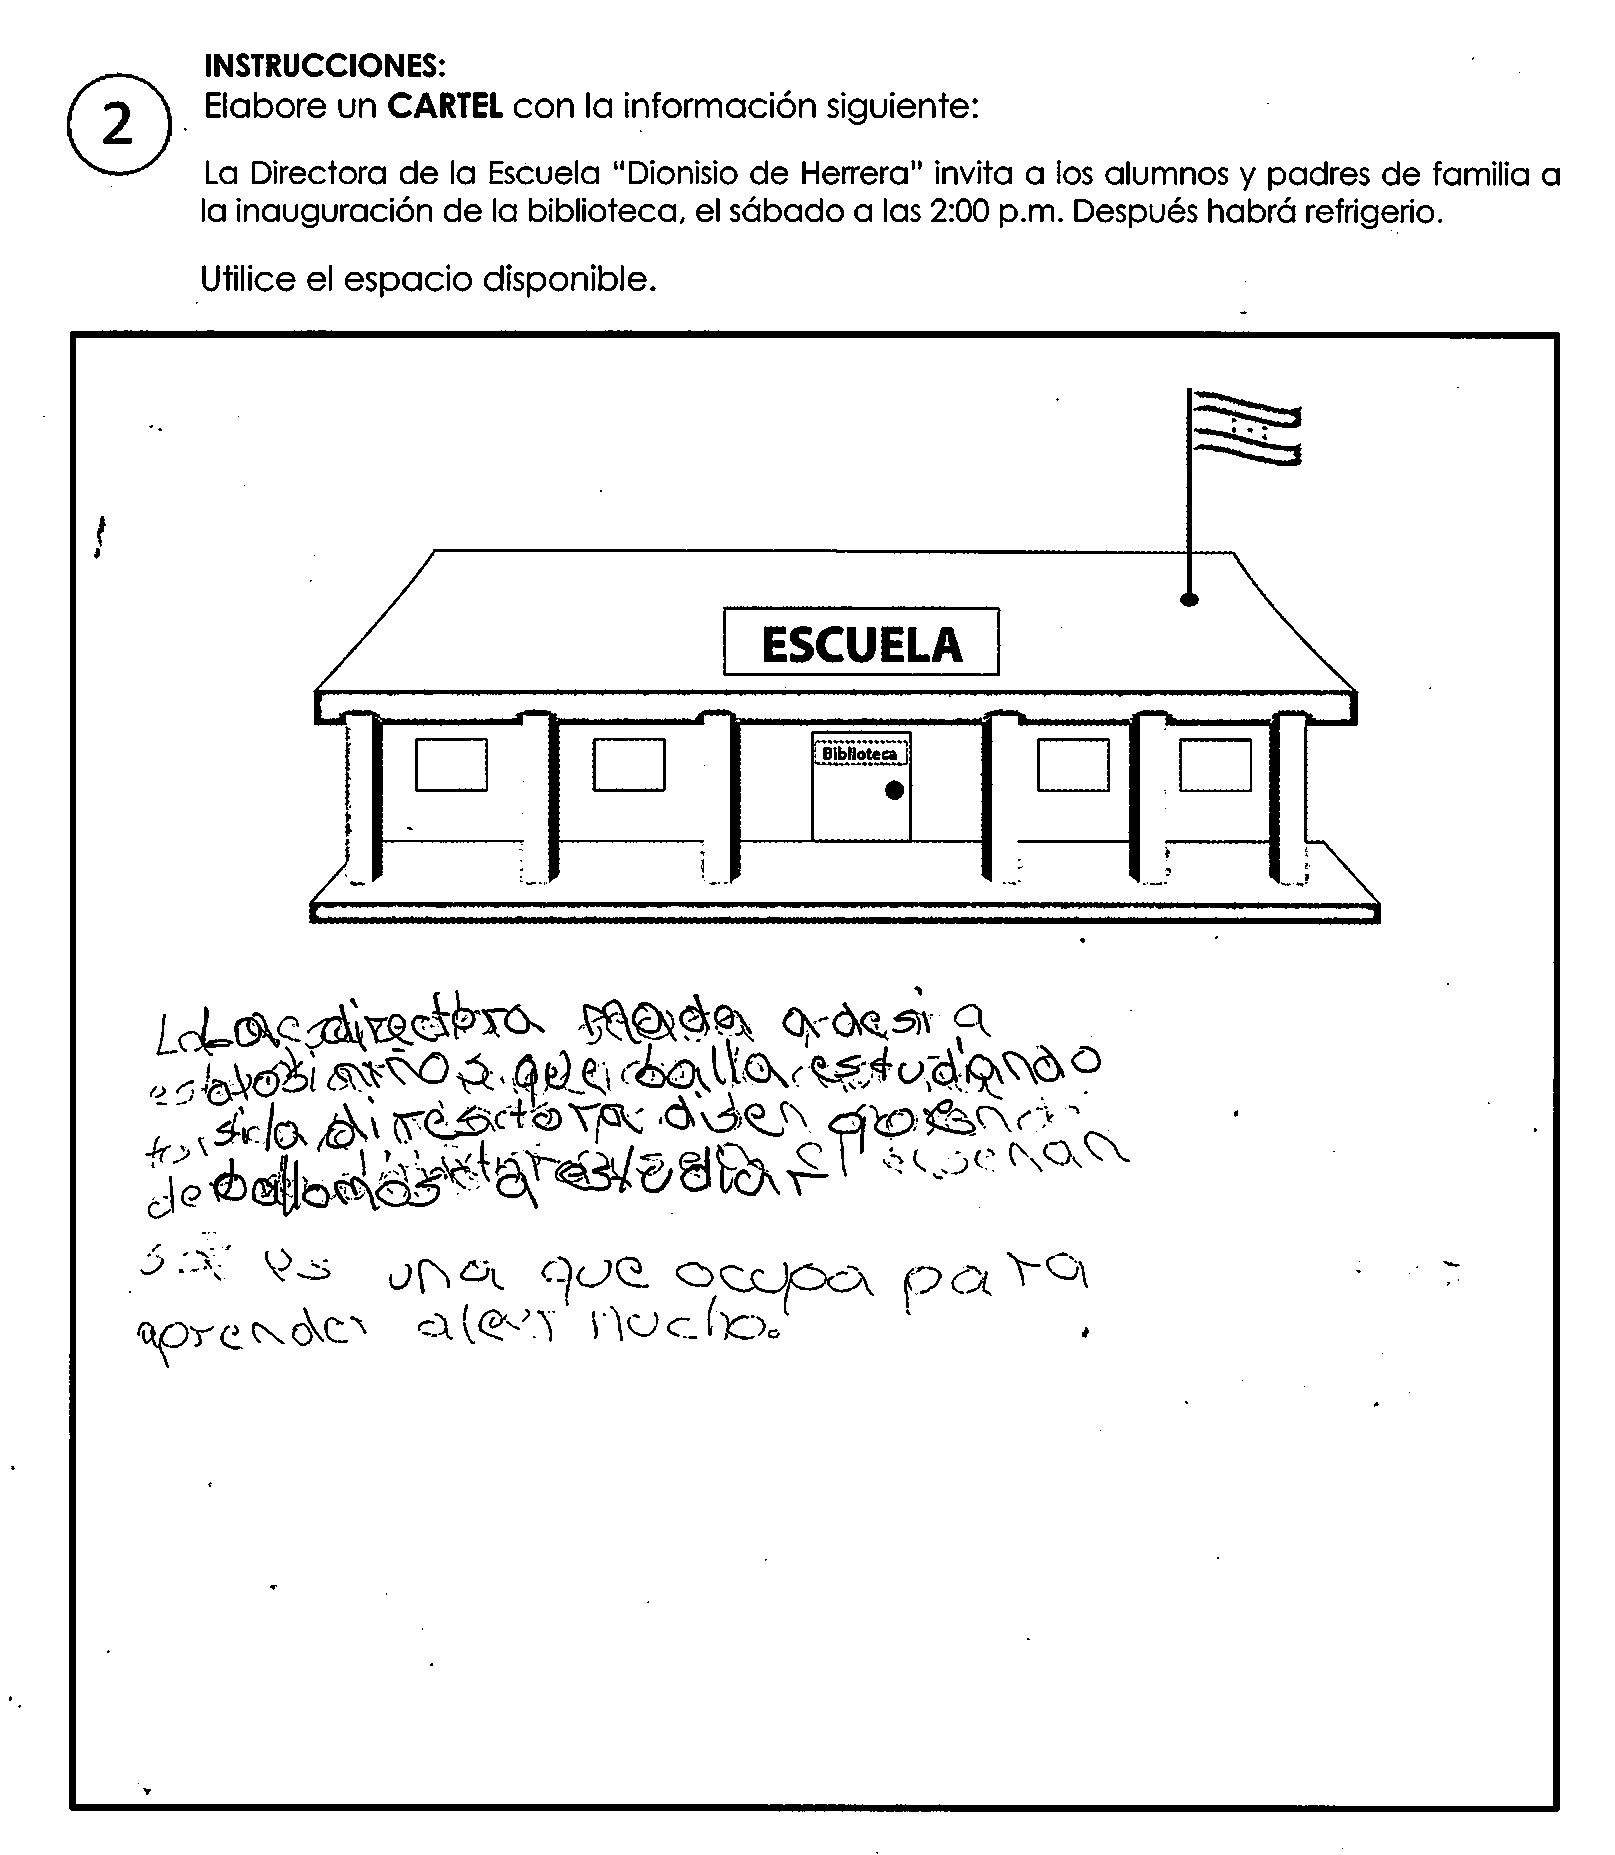 INSTRUCCIONES:
2
Elabore un CARTEL con la información siguiente:
La Directora de la Escuela "Dionisio de Herrera" invita a los alumnos y padres de familia a
la inauguración de la biblioteca, el sábado a las 2:00 p.m. Después habrá refrigerio.
Utilice el espacio disponible.
ESCUELA
Biblioteca
La directora mada a desir a
alos niños que balla estudiando
si la diresctora disen que
ballamos a estudiar enseñan
es una que ocupa para
aprender a leer mucho.